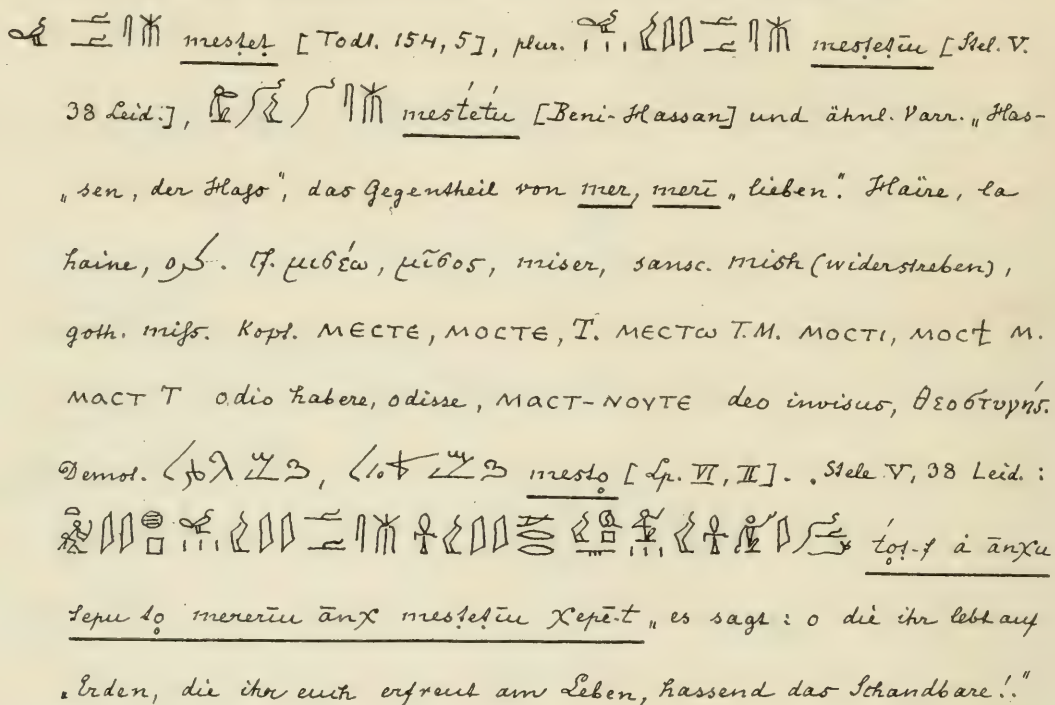 mesṭeṭ [Todt. 154, 5], plur. mesṭeṭīu [Stel. V.
38 Leid.], mest́et́u [Beni-Hassan] und ähnl. Varr. „Has-
„sen, der Haſs", das Gegentheil von mer, merī „lieben". Haïre, la
haine, كره. Cf. μισέω, μῖσος, miser, sansc. mish (widerstreben),
goth. miſs. Kopt. ΜΕСΤΕ, ΜΟСΤΕ, T. ΜΕСΤω T.M. ΜΟСΤΙ, ΜΟСϯ M.
ΜΑСΤ T odio habere, odisse, ΜΑСΤ-ΝΟΥΤΕ deo invisus, θεοστυγής.
Demot. mesto̤ [Lp. VI, II]. Stele V, 38 Leid.:
t́oṭ-f á ānχu
tepu to̤ mererīu ānχ mesṭeṭīu χepē-t „es sagt: o die ihr lebt auf
„Erden, die ihr euch erfreut am Leben, hassend das Schandbare!."